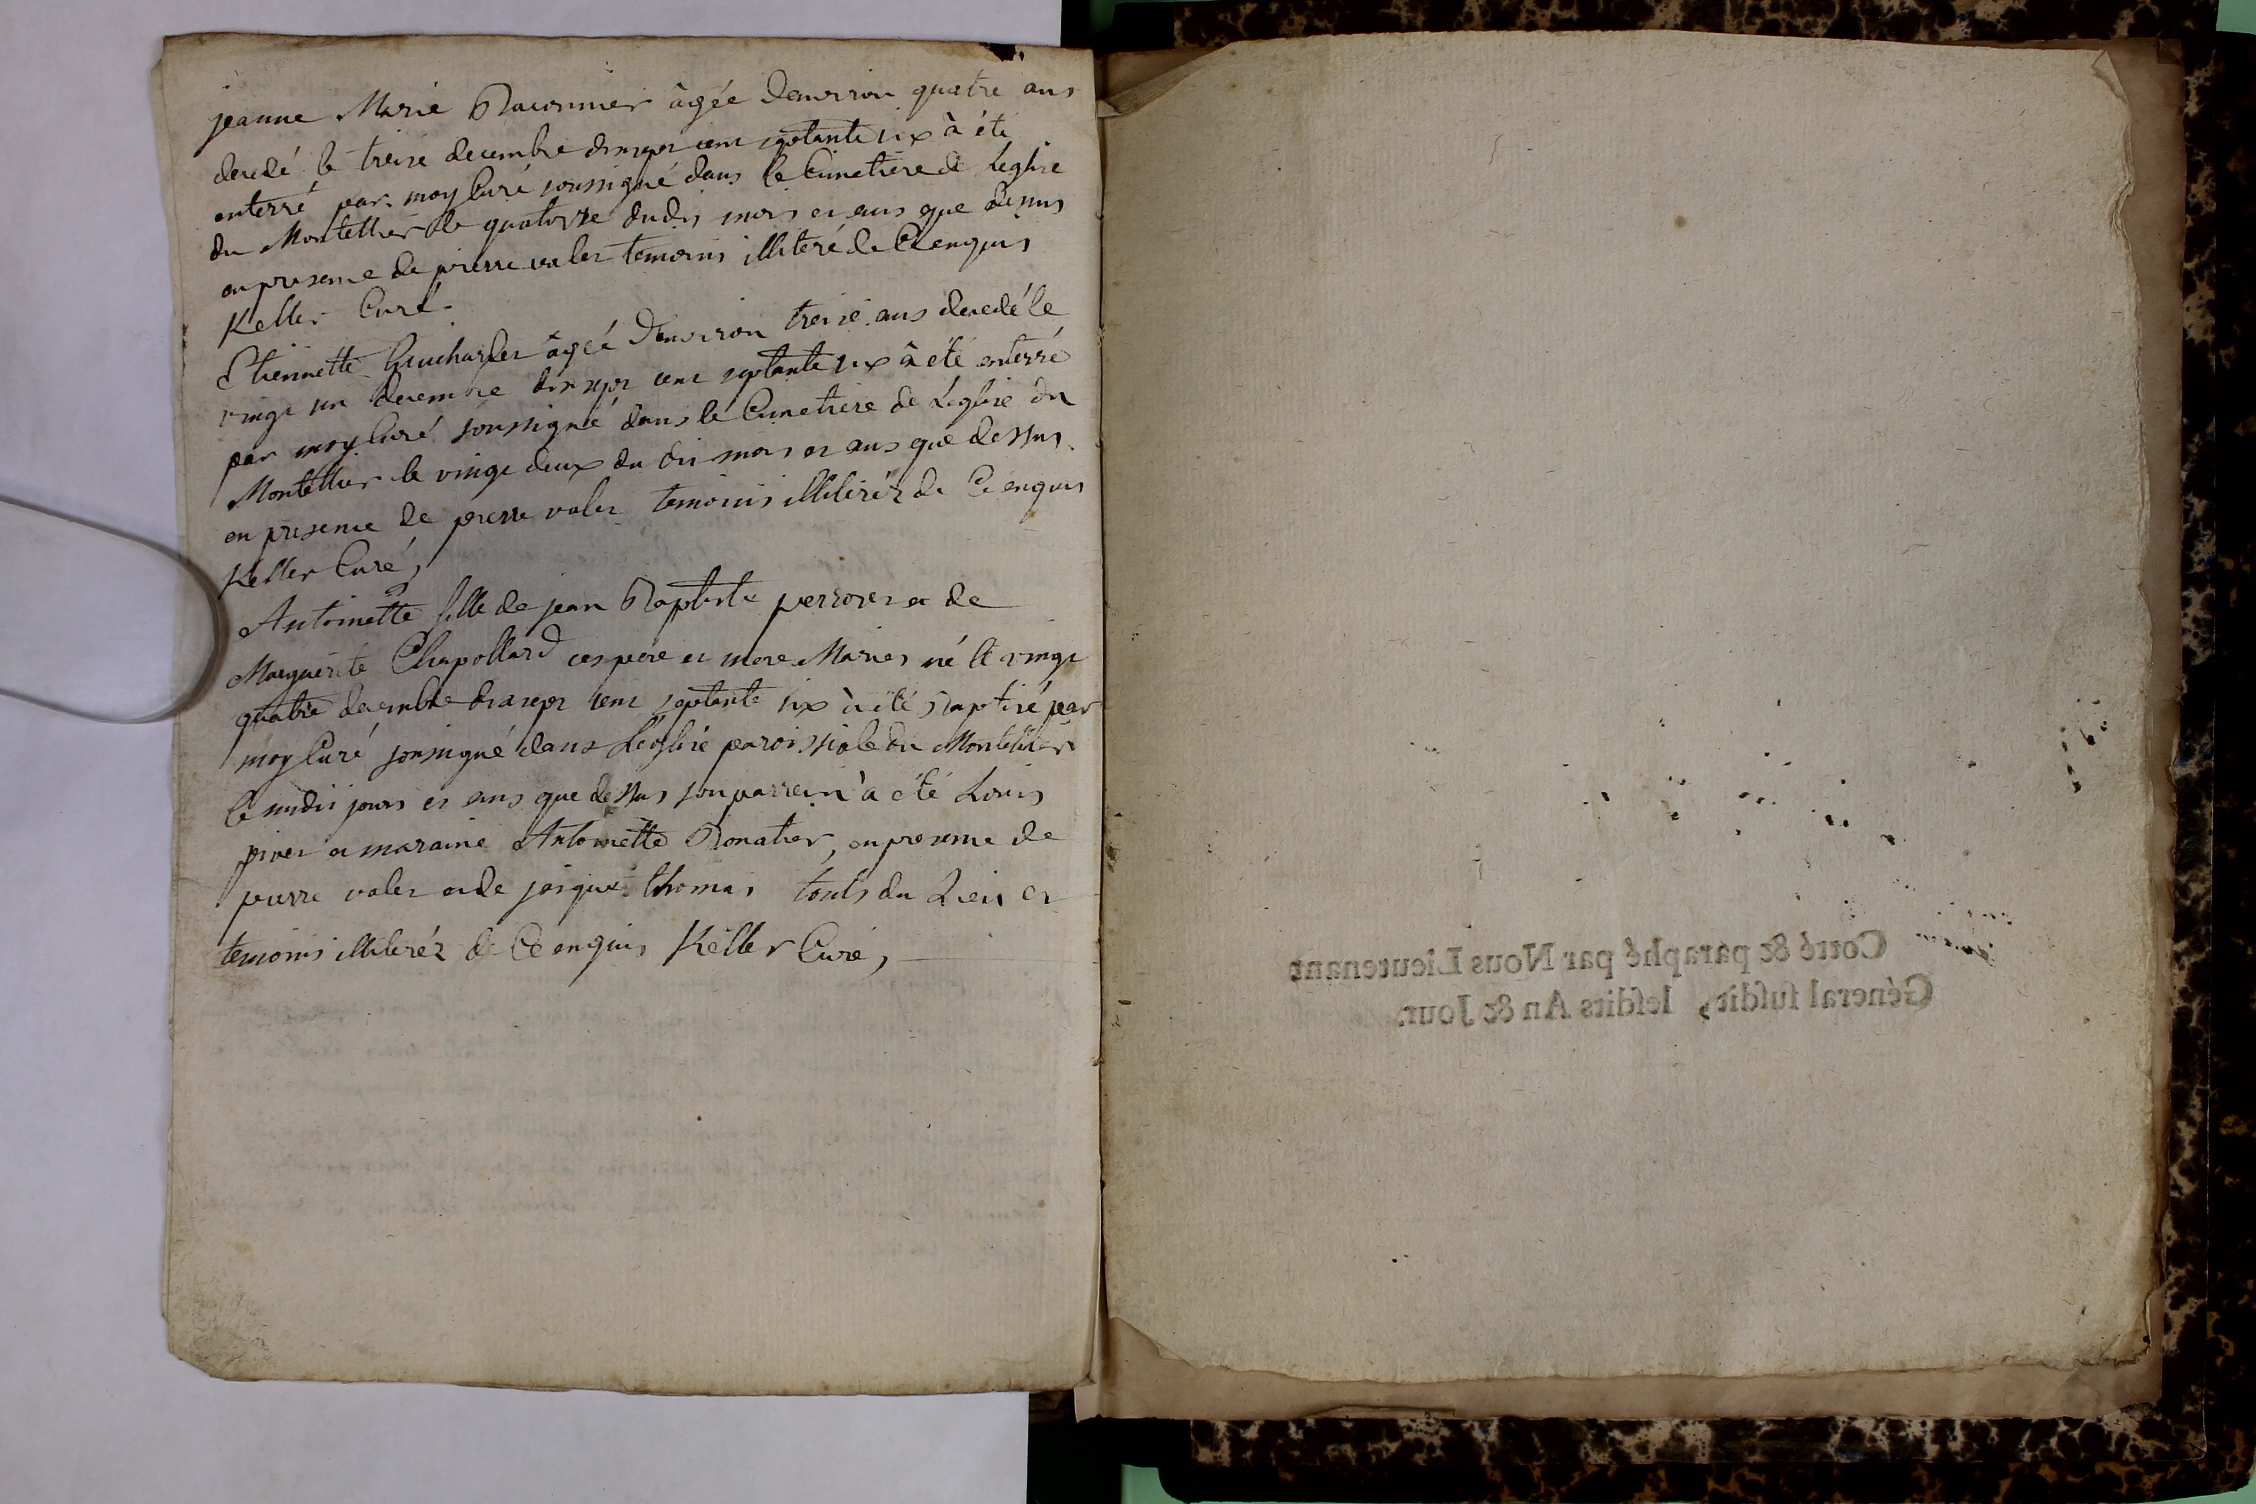 jeanne Marie Raconnier âgée denviron quatre ans
decedé le treise decembre dixsept cent septante six à été
enterré par moy Curé soussigné dans le Cimetiere de Leglise
du Montellier le quatorse dudit mois et ans que dessus
en presence de pierre valet temoins illiteré de Ce enquis
Keller Curé
Etiennette âgéé denviron treise ans decedé le
vingt un decembre dixsept cent septante six à été enterré
par moy Curé soussigné dans le Cimetiere de Leglise du
Montellier le vingt deux du dit mois et ans que dessus
en presence de pierre valet temoins illiteréz de Ce enquis
Keller Curé,
Antoinette fille de jean Baptiste perroset et de
Marguerite Chapollard ces pere et mere Mariés né le vingt
quatre decembre dixsept cent septante six à été Baptisé par
moy Curé sousigné dans Leglise paroissiale du Montellier
le sudit jours et ans que dessus son parrein à été Louis
pivet et maraine Antoinette Donatier, en presence de
pierre valet et de jaique thomas touts du Lieu et
temoins illiteréz de Ce enquis Keller Curé,
Cotté & paraphé par Nous Lieutenant
Géneral susdit, lesdits An & Jour.